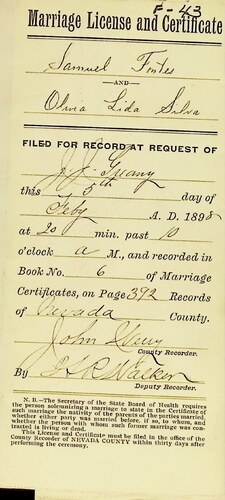 F-43
Marriage License and Certificate
Samuel Fontes
AND
Olivia Lida Silva
FILED FOR RECORD AT REQUEST OF
J. J.
this 5th day of
Feby A. D. 1898
at 20 min. past 10
o'clock a M., and recorded in
Book No. 6 of Marriage
Certificates, on Page 392 Records
of Nevada County.
John
County Recorder.
By Walker
Deputy Recorder.
N. B.—The Secretary of the State Board of Health requires
the person solemnizing a marriage to state in the Certificate of
such marriage the nativity of the parents of the parties married,
whether either party was married before, if so, to whom, and
whether the person with whom such former marriage was con-
tracted is living or dead.
This License and Certificate must be filed in the office of the
County Recorder of NEVADA COUNTY within thirty days after
performing the ceremony.